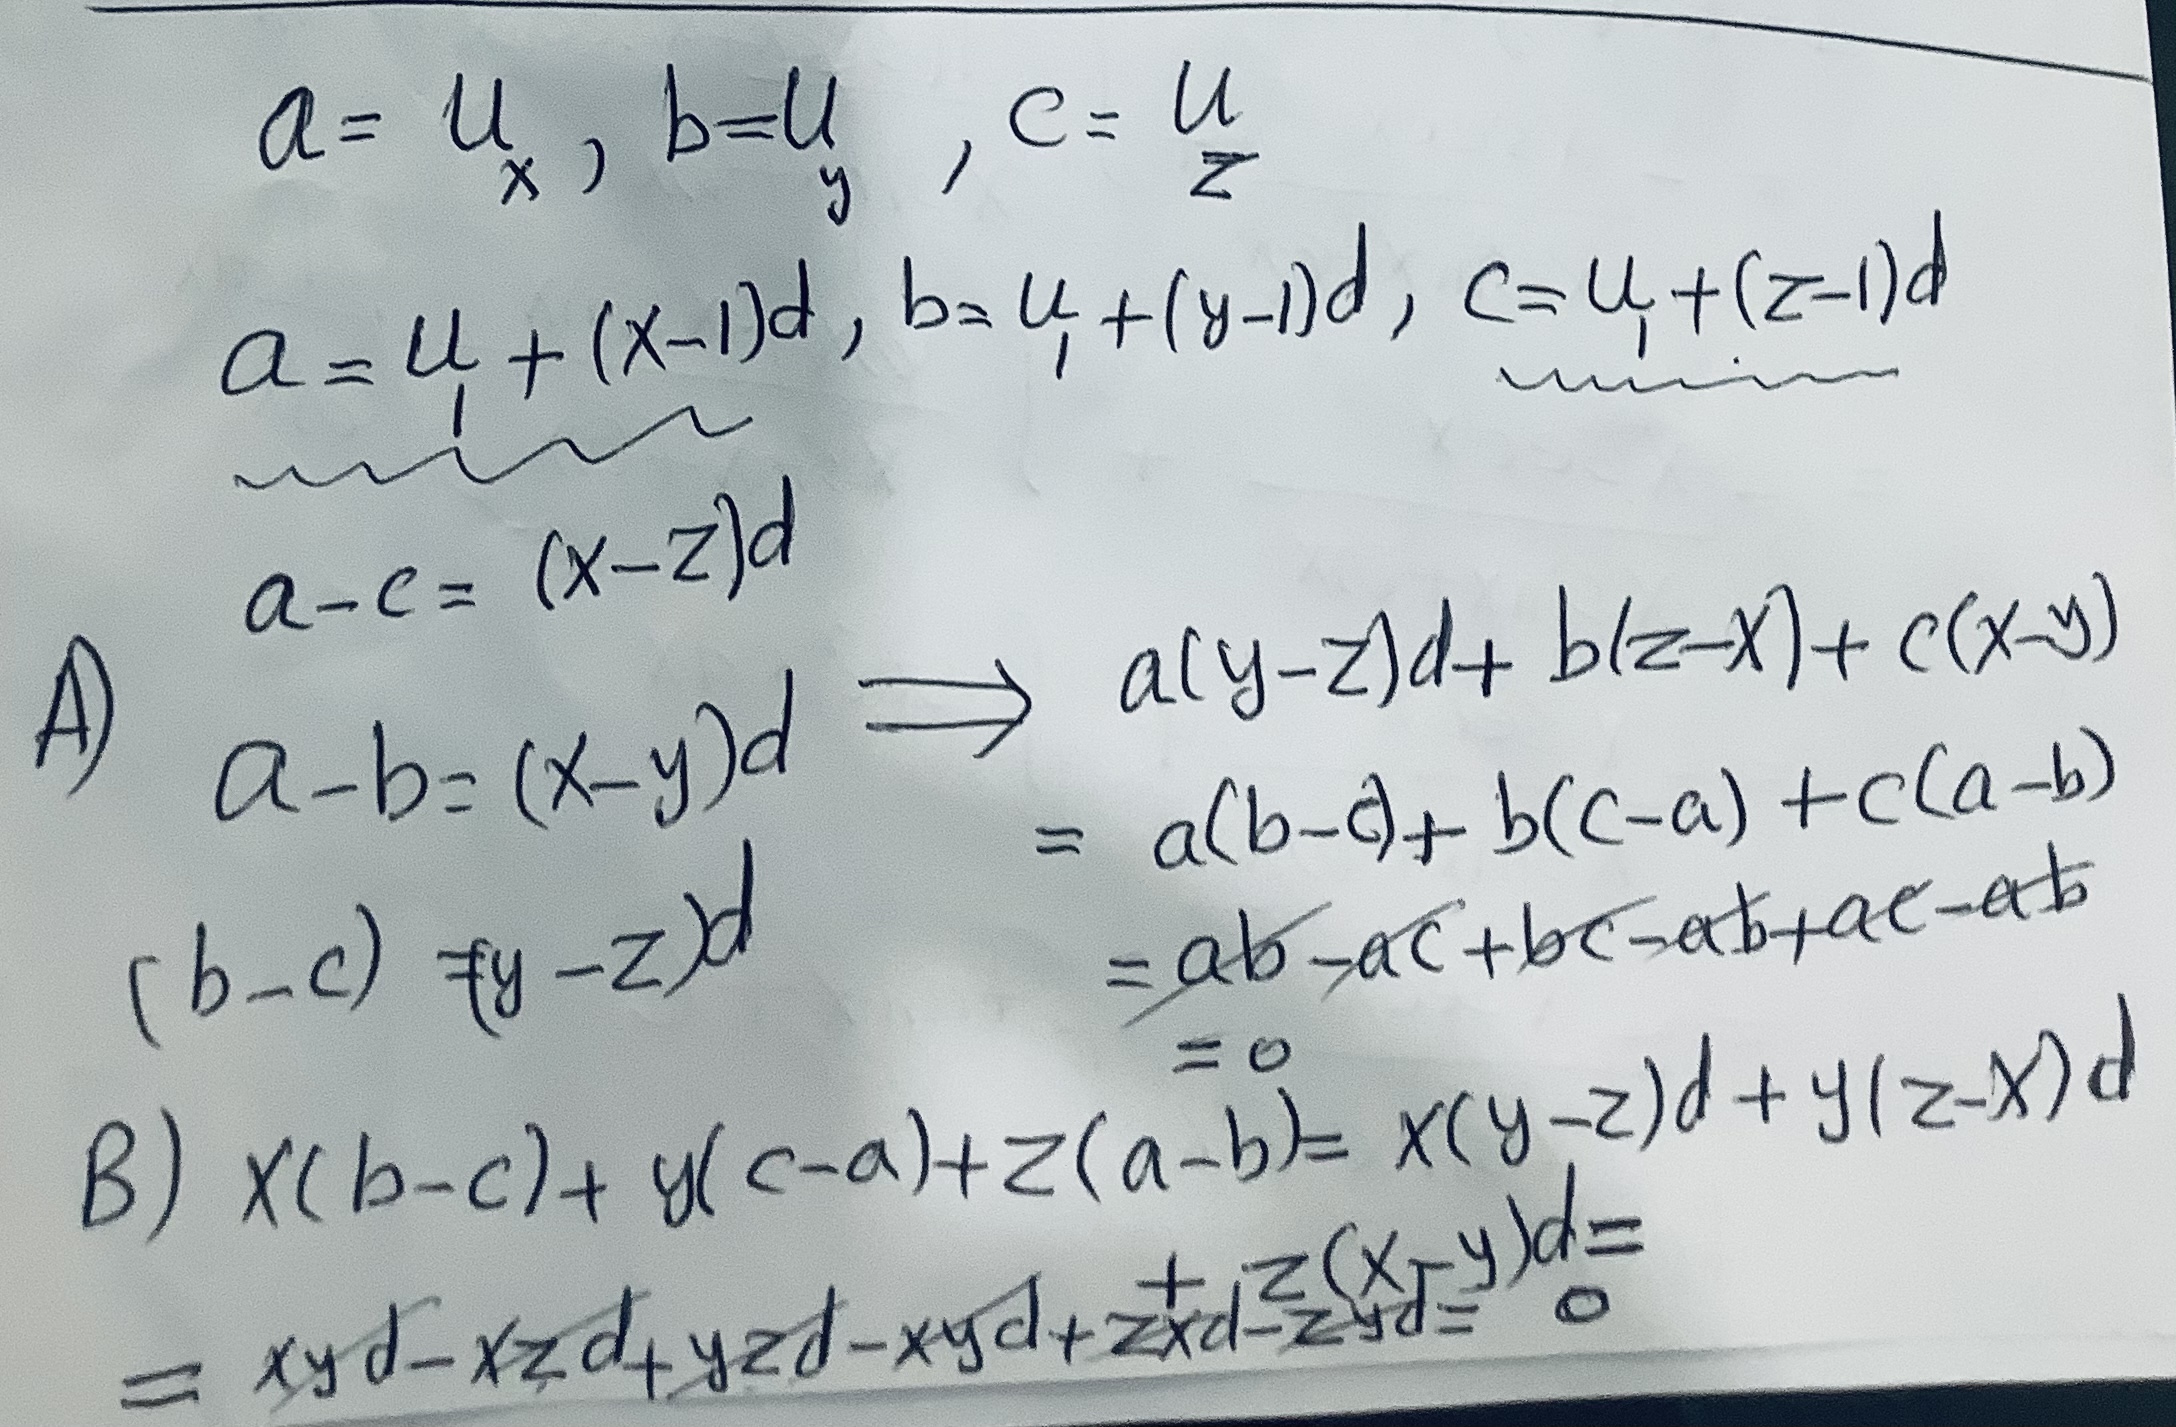 a = u_x, b = u_y, c = u_z
a = u_1 + (x-1)d, b = u_1 + (y-1)d, c = u_1 + (z-1)d
a - c = (x-z)d
A) a - b = (x-y)d ⟹ a(y-z)d + b(z-x) + c(x-y)
= a(b-c) + b(c-a) + c(a-b)
(b-c) = (y-z)d
= ab - ac + bc - ab + ac - ab
= 0
B) x(b-c) + y(c-a) + z(a-b) = x(y-z)d + y(z-x)d
+ z(x-y)d =
= xyd - xzd + yzd - xyd + zxd - zyd = 0